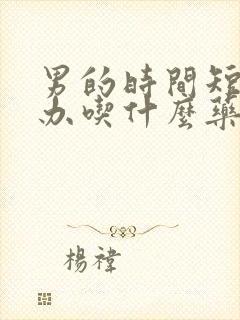 男的時間短
办喫什麼藥
楊禕